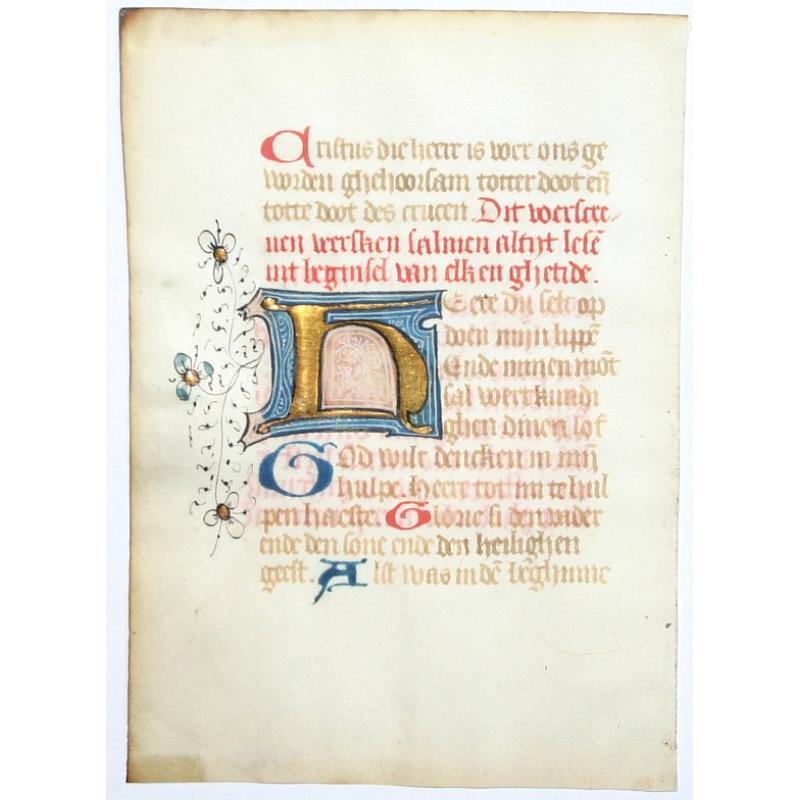 Cristus die here is voer ons ge
worden ghehoorsam totter doot en̄
totte doot des crucen. Dit voerscre⸗
uen versken salmen altyt lesē
int beginsel van elken ghetide.
HEere du selt op
doen mijn lippē
Ende minen mōt
sal vert kundi
ghen dinen lof
GOd wilt dencken in mijn̄
hulpe. Heere tot mi te hul
pen haeste. Glorie si den vader
ende den sone ende den heilighen
geest. Alst was in dē beghinne